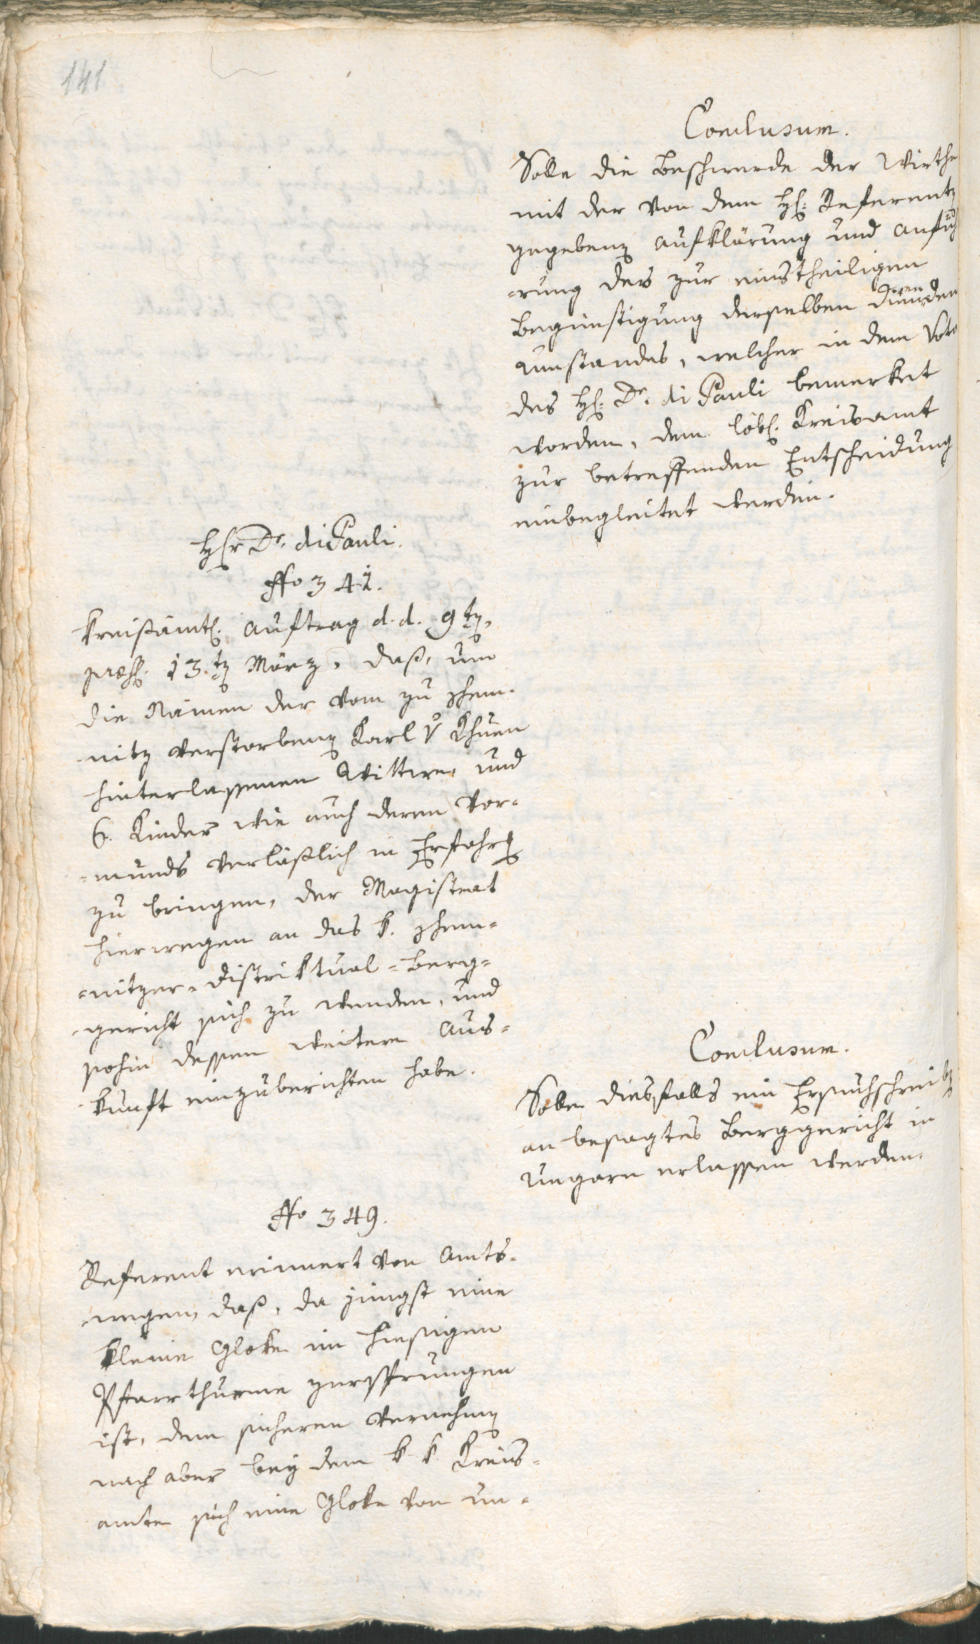 141
Conclusum.
Solle die Beschwerde der Wirthe
mit der von dem H: Referenten
gegebenen Aufklärung und Anfüh
-rung des zur einstheiligen
Begünstigung derselben dienenden
Umstandes, welcher in dem Voto
des H: Dr. di Pauli bemerket
worden, dem löbl. Kreisamt
zur betreffenden Entscheidung
einbegleitet werden.
Hr Dr. di Pauli.
No 341.
Kreisämtl. Auftrag d. d. 9ten,
præs. 13.ten März, daß, um
die Namen der vom zu Schem-
nitz verstorbenen Karl v Khuen
hinterlassenen Wittwe, und
6. Kinder wie auch deren Vor-
-munds verläßlich in Erfahrung
zu bringen, der Magistrat
hierwegen an das k. Schem-
-nitzer-Distriktual-Berg-
gericht sich zu wenden, und
sohin dessen weitere Aus-
kunft einzuberichten habe.
Conclusum.
Solle diesfalls ein Ersuchschreiben
an besagtes Berggericht in
Ungarn erlassen werden.
No 349.
Referent erinnert von Amts-
wegen, daß, da jüngst eine
kleine Gloke im hiesigen
Pfarrthurme zersprungen
ist, dem sicheren Vernehmen
nach aber bey dem k k Kreis-
amte sich eine Gloke von un-